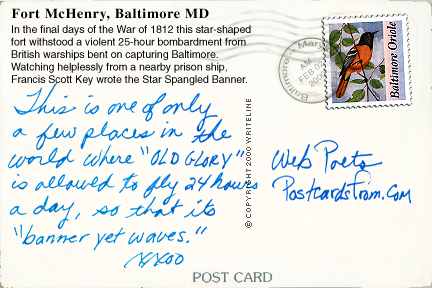 Fort McHenry, Baltimore MD
In the final days of the War of 1812 this star-shaped
fort withstood a violent 25-hour bombardment from
British warships bent on capturing Baltimore.
Watching helplessly from a nearby prison ship,
Francis Scott Key wrote the Star Spangled Banner.
This is one of only
a few places in the
world where "OLD GLORY"
is allowed to fly 24 hours
a day, so that its
"banner yet waves."
xxoo
© COPYRIGHT 2000 WRITELINE
Baltimore, Mary
AM
FEB
20
Baltimore Oriole
Web Poets
Postcardsfrom.com
POST CARD